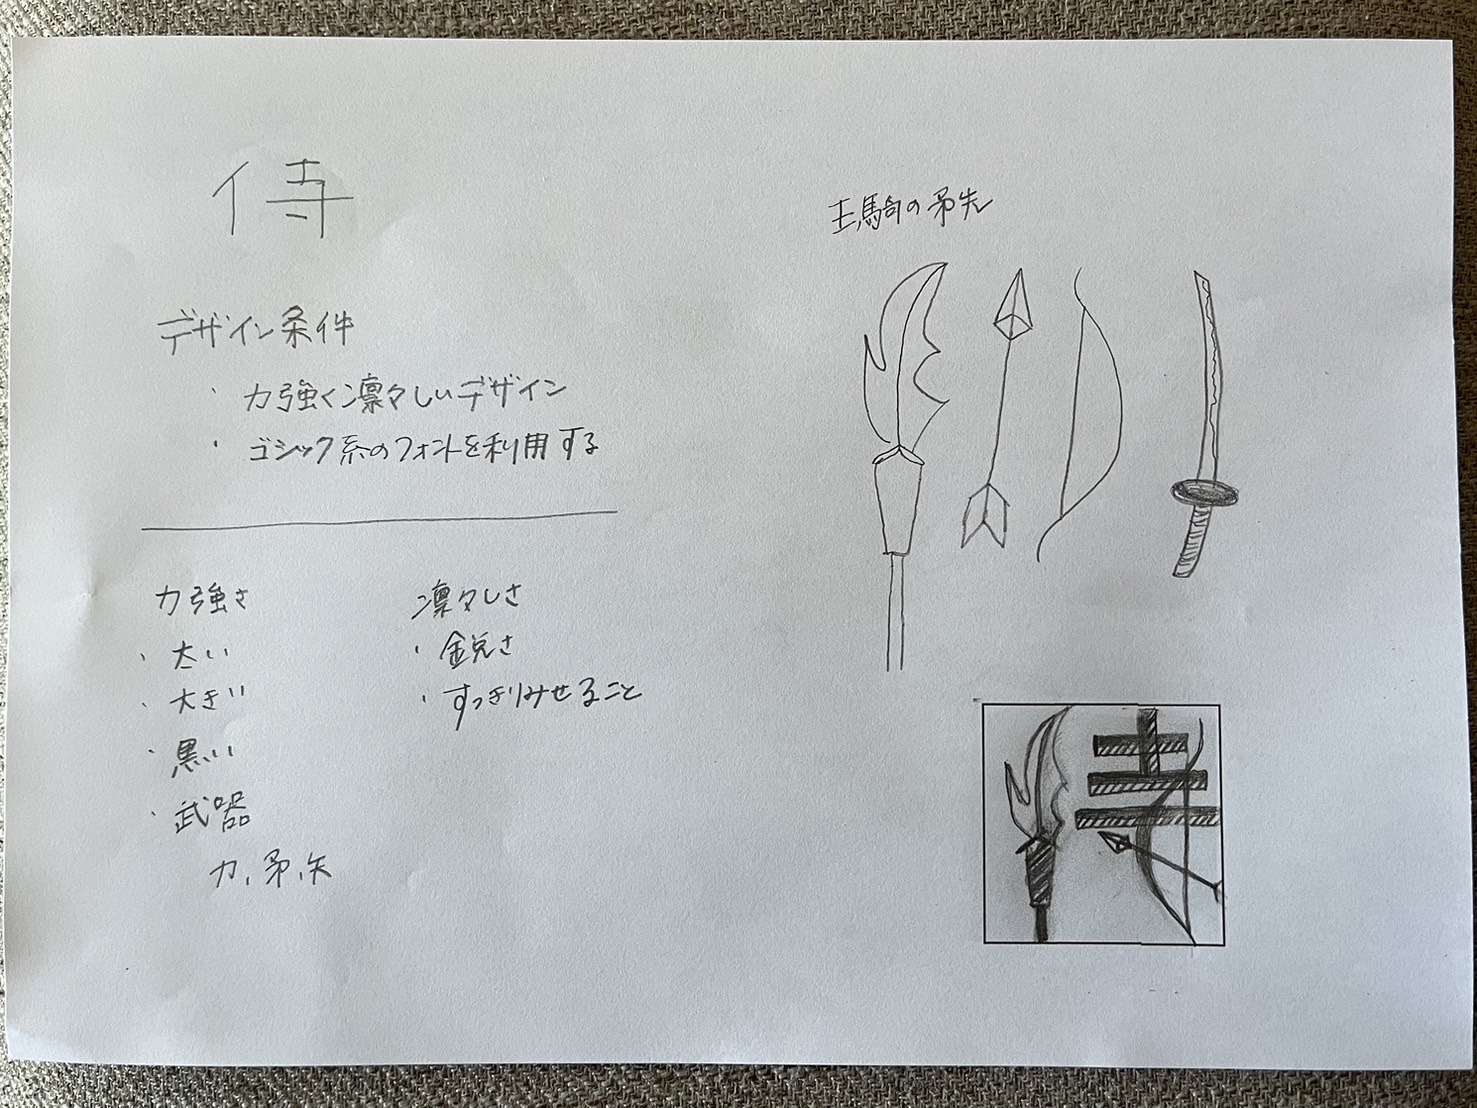 侍
デザイン条件
・力強く凛々しいデザイン
・ゴシック系のフォントを利用する
力強さ
・太い
・大きい
・黒い
・武器
刀、矛、矢
凛々しさ
・鋭さ
・すっきりみせること
王騎の矛先